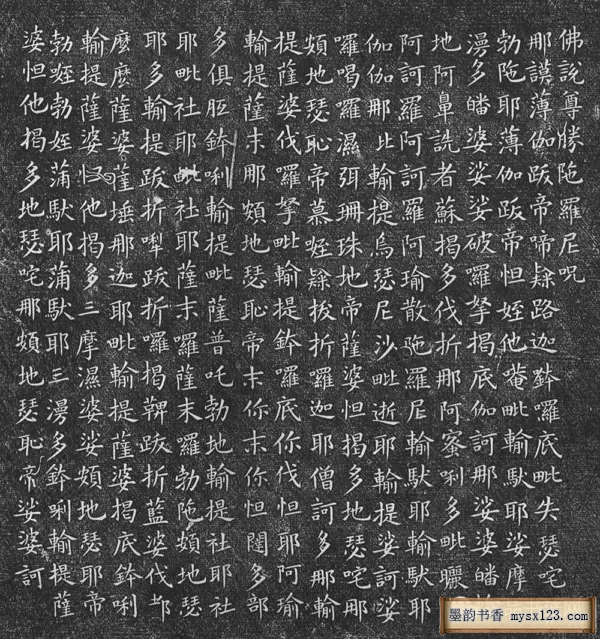 佛說尊勝陁羅尼呪
那謨薄伽跋帝啼隸路迦鉢羅底毗失瑟咤
勃陁耶薄伽跋帝怛姪他唵毗輸馱耶娑摩
漫多皤婆娑娑破羅拏揭底伽訶那娑婆皤
地阿鼻詵者蘇揭多伐折那阿蜜唎多毗曬
阿訶羅阿訶羅阿瑜散陁羅尼輸馱耶輸馱耶
伽伽那比輸提烏瑟尼沙毗逝耶輸提娑訶娑
羅喝羅濕弭珊珠地帝薩婆怛揭多地瑟咤那
頞地瑟恥帝慕姪隸拔折羅迦耶僧訶多那輸
提薩婆伐羅拏毗輸提鉢羅底你伐怛耶阿瑜
輸提薩末那頞地瑟恥帝末你末你怛闥多部
多俱胝鉢唎輸提毗薩普吒勃地輸提社耶社
耶毗社耶毗社耶薩末羅薩末羅勃陁頞地瑟
耶多輸提跋折犁跋折羅揭鞞跋折藍婆伐都
麼麼薩婆薩埵那迦耶毗輸提薩婆揭底鉢唎
輸提薩婆怛他揭多三摩濕婆娑頞地瑟耶帝
勃姪勃姪蒲馱耶蒲馱耶三漫多鉢唎輸提薩
婆怛他揭多地瑟咤那頞地瑟恥帝娑婆訶
墨韵书香 mysx123.com